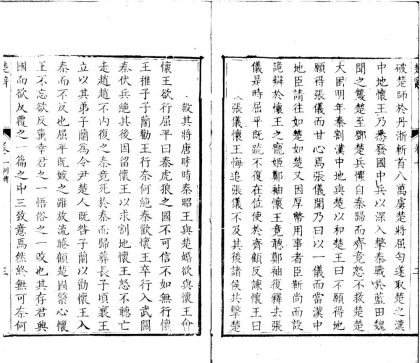 破楚師於丹淅斬首八萬虜楚將屈匄遂取楚之漢
中地懷王乃悉發國中兵以深入擊秦戰於藍田魏
聞之襲楚至鄧楚兵懼自秦歸而齊竟怒不救楚楚
大困明年秦割漢中地與楚以和楚王曰不願得地
願得張儀而甘心焉張儀聞乃曰以一儀而當漢中
地臣請往如楚如楚又因厚幣用事者臣靳尚而設
詭辯於懷王之寵姬鄭袖懷王竟聽鄭袖復釋去張
儀是時屈平既疏不復在位使於齊顧反諫懷王曰
何不殺張儀懷王悔追張儀不及其後諸侯共擊楚
大破之殺其將唐昧時秦昭王與楚婚欲與懷王會
懷王欲行屈平曰秦虎狼之國不可信不如無行懷
王稚子子蘭勸王行奈何絕秦歡懷王卒行入武關
秦伏兵絕其後因留懷王以求割地懷王怒不聽亡
走趙趙不內復之秦竟死於秦而歸葬長子頃襄王
立以其弟子蘭為令尹楚人既咎子蘭以勸懷王入
秦而不反也屈平既嫉之雖放流睠顧楚國繫心懷
王不忘欲反冀幸君之一悟俗之一改也其存君興
國而欲反覆之一篇之中三致意焉然終無可奈何
楚辭